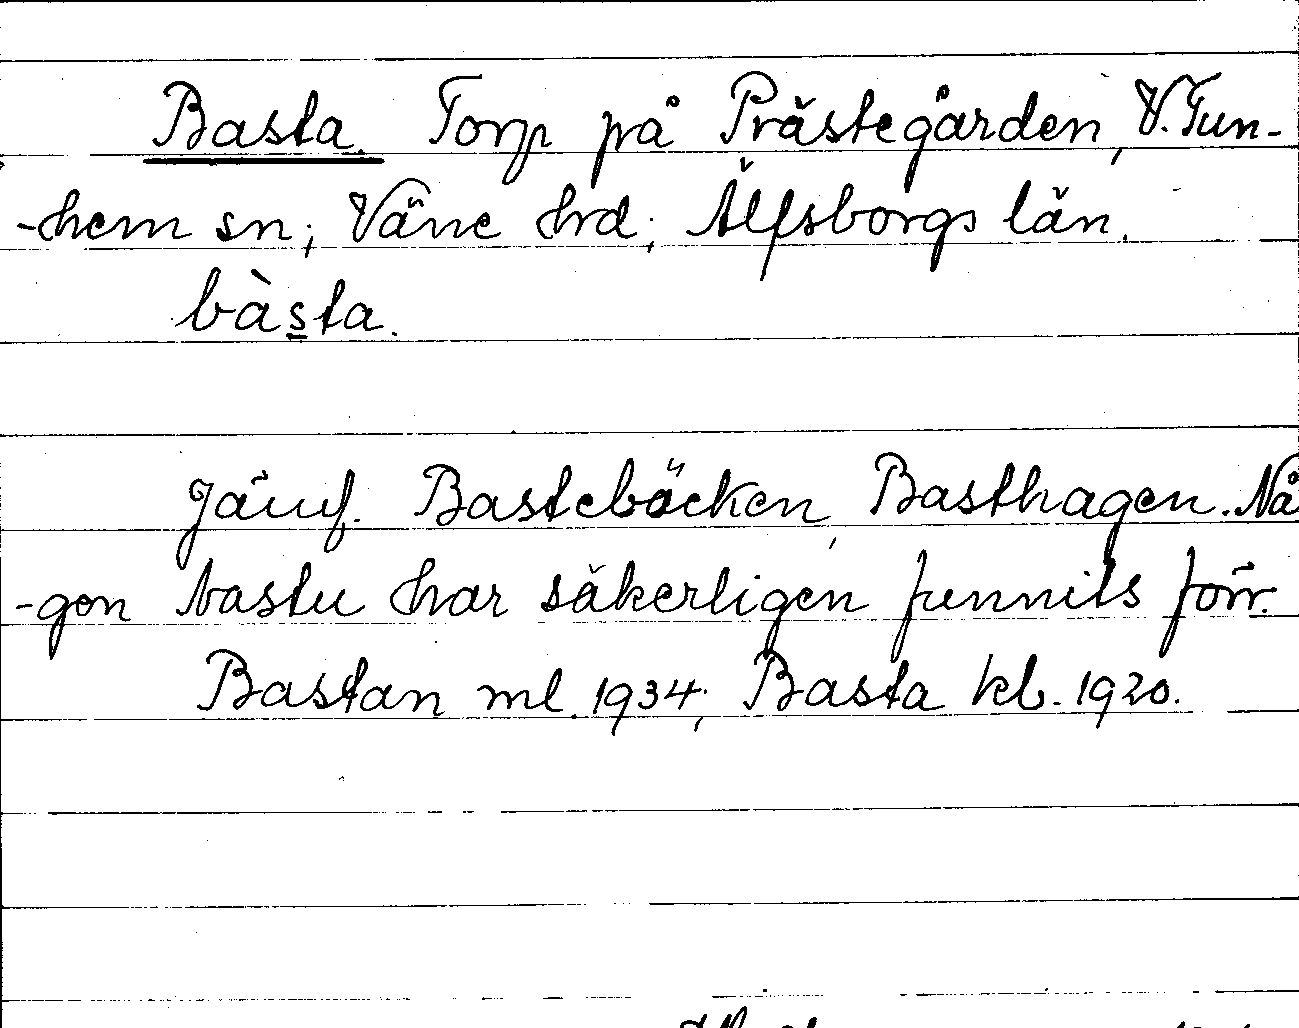 Basta. Torp på Prästegården, V. Tun-
-hem sn; Väne hrd; Älfsborgs län.
bàsta.
Jämf. Bastebäcken, Basthagen. Nå
-gon bastu har säkerligen funnits förr.
Bastan ml. 1934; Basta kb. 1920.